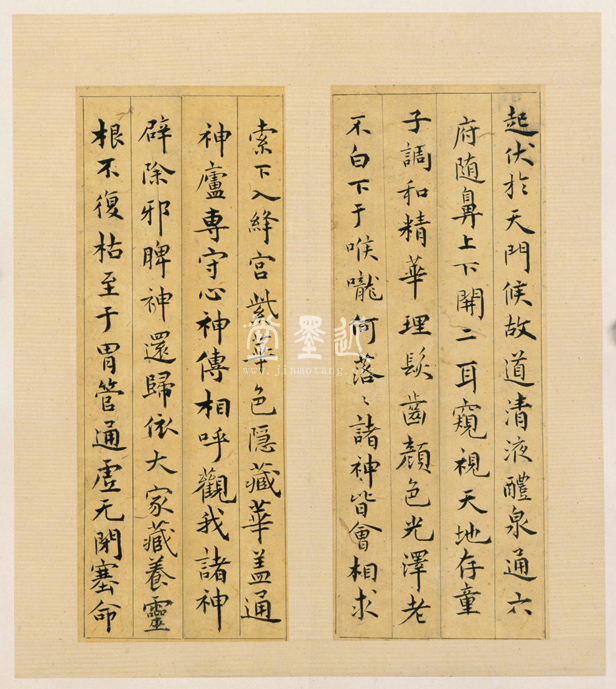 起伏於天門候故道清液醴泉通六
府随鼻上下開二耳窺視天地存童
子調和精華理髮齒顔色光澤老
不白下于喉嚨何落〻諸神皆會相求
索下入絳宮紫華色隱藏華盖通
神廬專守心神傳相呼觀我諸神
辟除邪脾神還歸依大家藏養靈
根不復枯至于胃管通虛无閉塞命
近墨堂
www.jinmotang.com